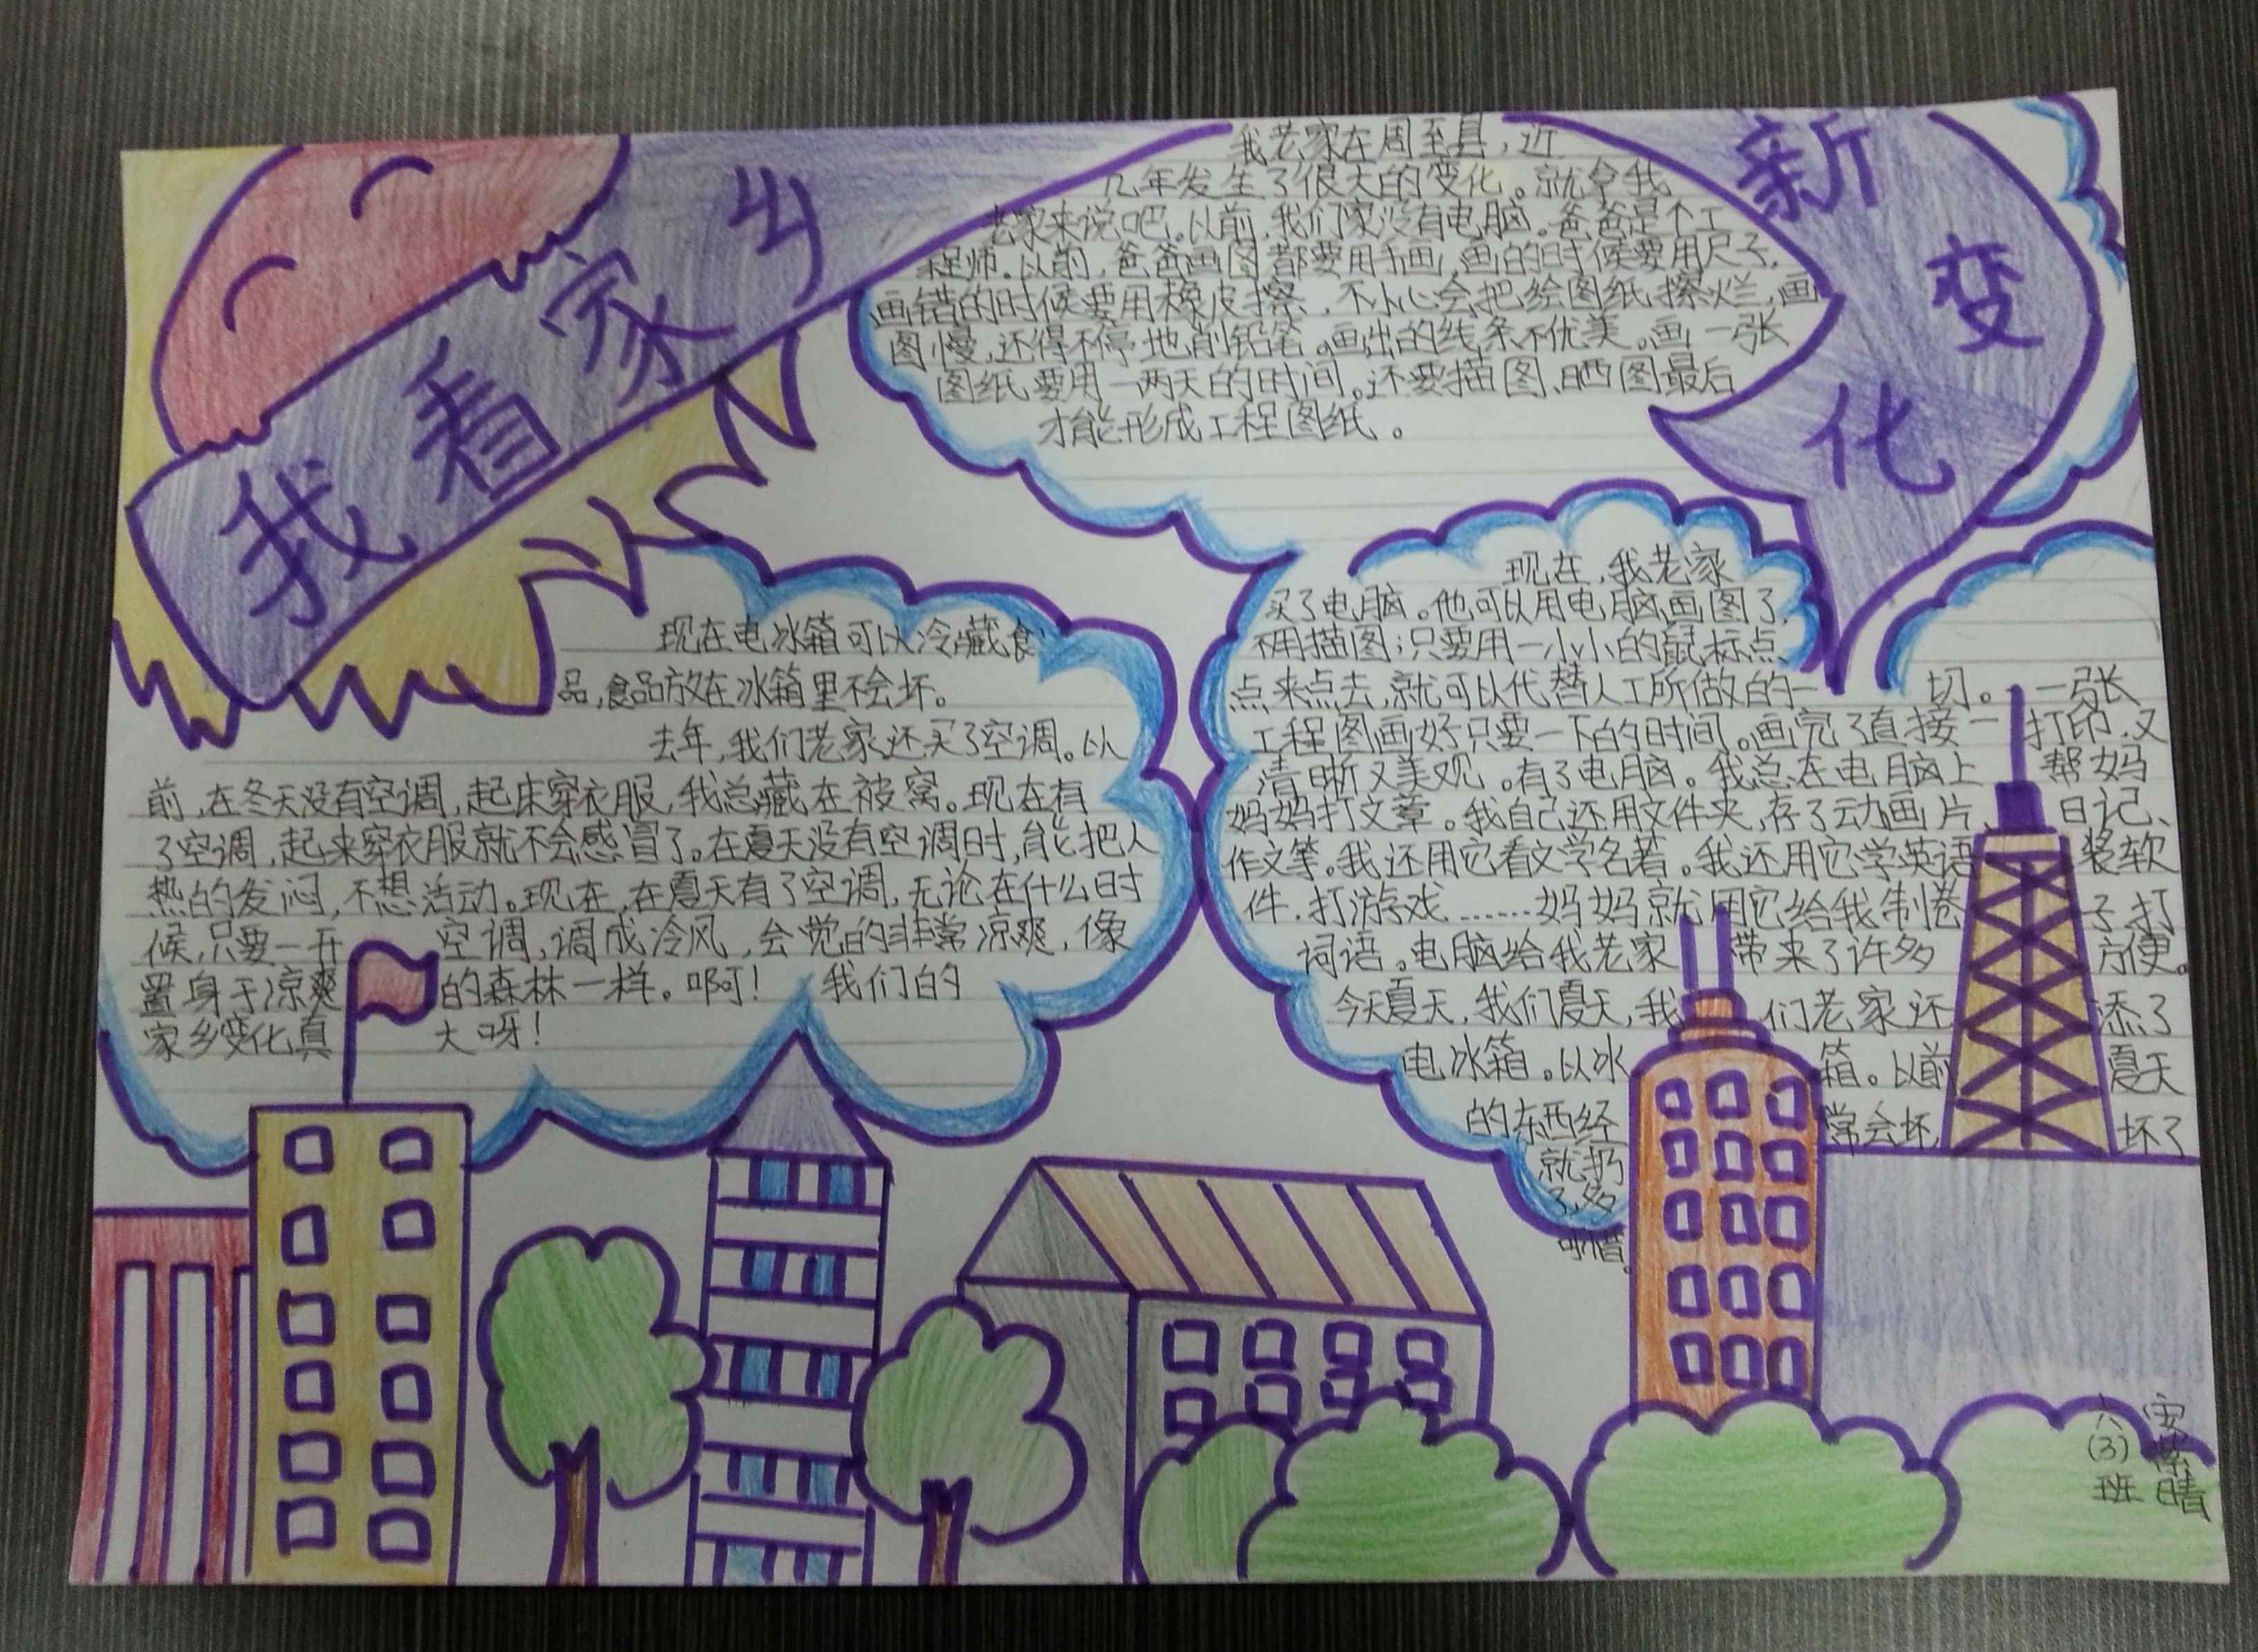 我看家乡
新变化
我老家在周至县，近
几年发生了很大的变化。就拿我
老家来说吧。以前，我们家没有电脑。爸爸是个工
程师。以前，爸爸画图都要用手画，画的时候要用尺子，
画错的时候要用橡皮擦，不小心会把绘图纸擦烂，画
图慢，还得不停地削铅笔。画出的线条不优美。画一张
图纸要用一两天的时间。还要描图、晒图最后
才能形成工程图纸。
现在，我老家
买了电脑。他可以用电脑画图了，
不用描图；只要用一小小的鼠标点
点来点去，就可以代替人工所做的一切。一张
工程图画好只要一下的时间。画完了直接一打印，又
清晰又美观。有了电脑。我总在电脑上帮妈
妈妈打文章。我自己还用文件夹，存了动画片、日记、
作文等。我还用它看文学名著。我还用它学英语、装软
件，打游戏……妈妈就用它给我制卷子，打
词语。电脑给我老家带来了许多方便。
今天夏天，我们夏天，我们老家还添了
电冰箱。以冰箱。以前夏天
的东西经常会坏，坏了
就扔
了，多
可惜。
现在电冰箱可以冷藏食
品，食品放在冰箱里不会坏。
去年，我们老家还买了空调。以
前，在冬天没有空调，起床穿衣服，我总藏在被窝。现在有
了空调，起来穿衣服就不会感冒了。在夏天没有空调时，能把人
热的发闷，不想活动。现在，在夏天有了空调，无论在什么时
候，只要一开空调，调成冷风，会觉的非常凉爽，像
置身于凉爽的森林一样。啊！我们的
家乡变化真大呀！
六(3)班
安紫晴